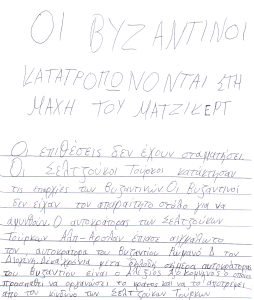 ΟΙ ΒΥΖΑΝΤΙΝΟΙ
ΚΑΤΑΤΡΟΠΩΝΟΝΤΑΙ ΣΤΗ
ΜΑΧΗ ΤΟΥ ΜΑΤΖΙΚΕΡΤ
Οι επιθέσεις δεν έχουν σταματήσει.
Οι Σελτζούκοι Τούρκοι κατάκτησαν
τις επαρχίες των Βυζαντινών. Οι Βυζαντινοί
δεν είχαν τον απαραίτητο στόλο για να
αμυνθούν. Ο αυτοκράτορας των Σελτζούκων
Τούρκων Αλπ-Αρσλάν έπιασε αιχμάλωτο
τον αυτοκράτορα του Βυζαντίου Ρωμανό Δ τον
Διογένη. Δέκα χρόνια μετά δηλαδή σήμερα αυτοκράτορας
του Βυζαντίου είναι ο Αλέξιος Α Κομνηνός ο οποίος
προσπαθεί να οργανώσει το κράτος και να το αποτρέψει
από τον κίνδυνο των Σελτζούκων Τούρκων